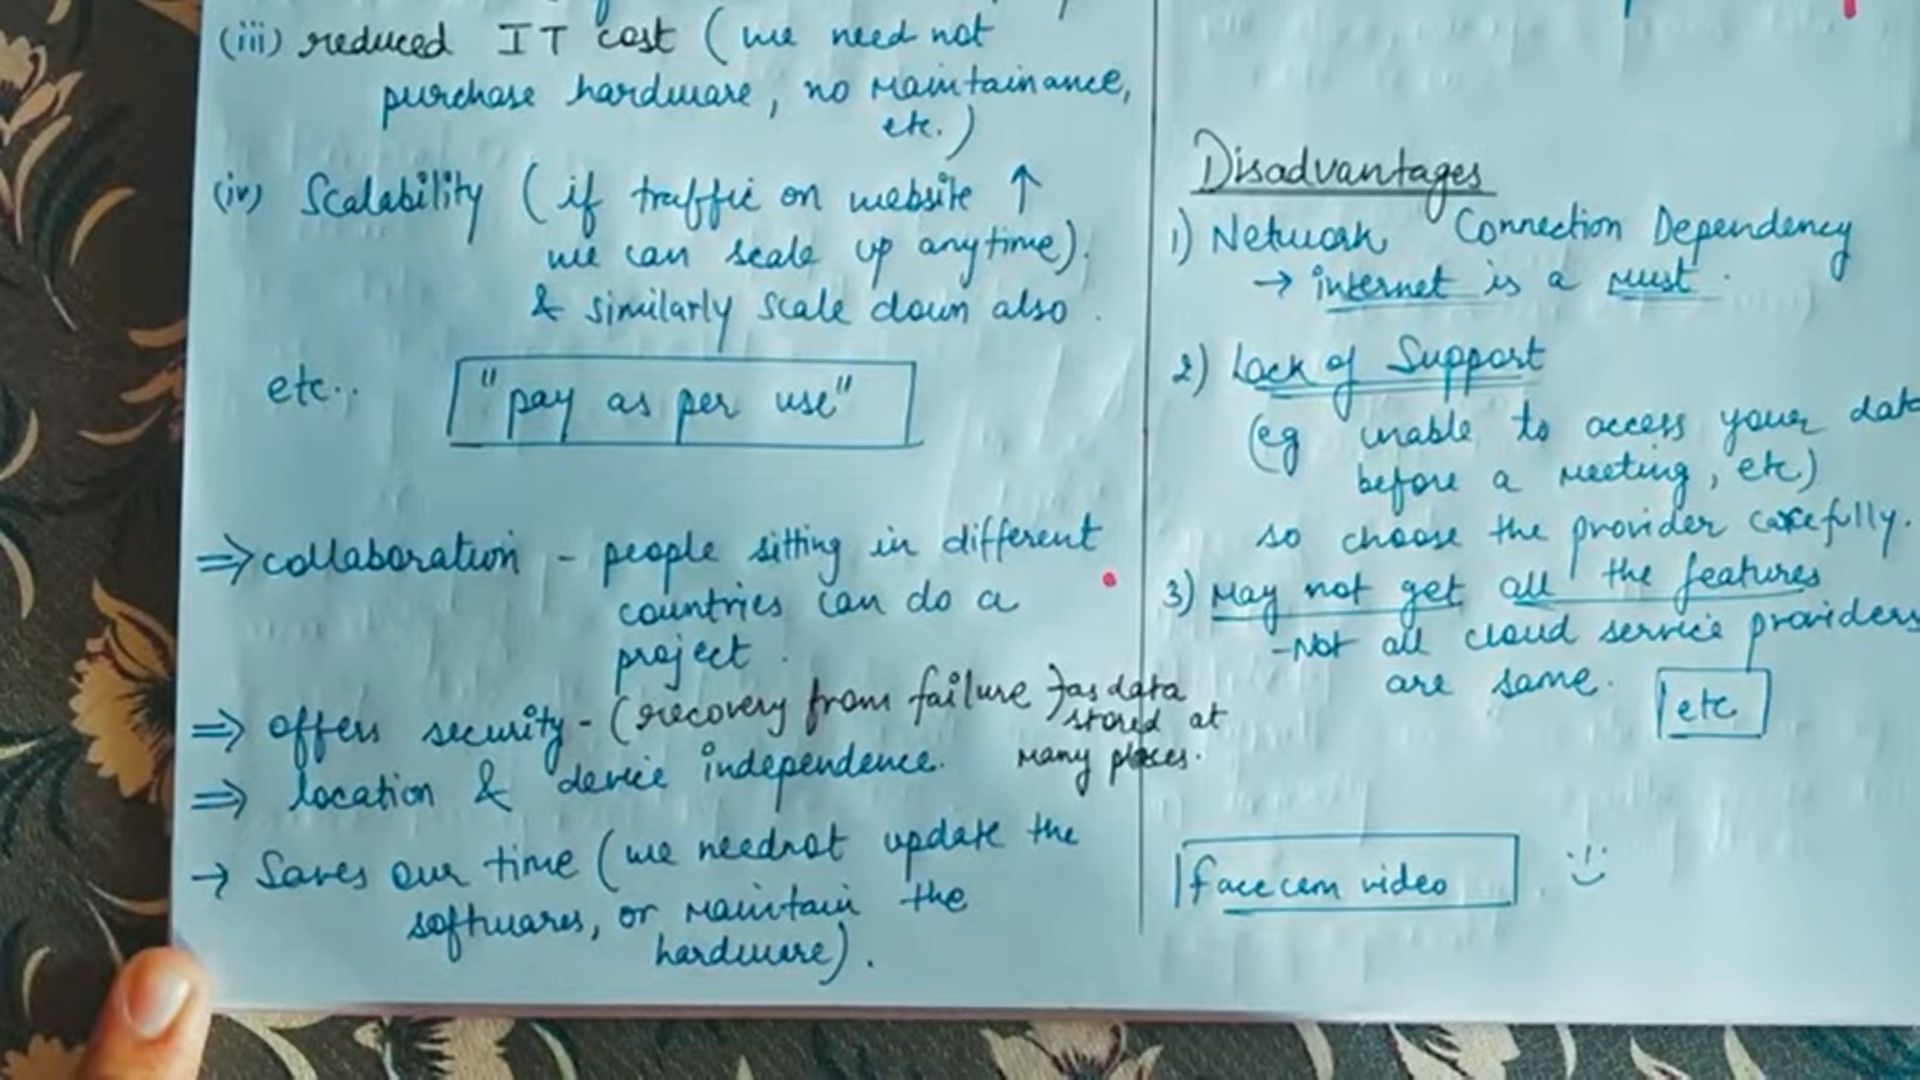 (iii) reduced IT cost (we need not
purchase hardware, no maintainance,
etc.)
(iv) Scalability (if traffic on website ↑
we can scale up anytime).
& similarly scale down also.
etc..
"pay as per use"
⇒ collaboration - people sitting in different
countries can do a
project.
⇒ offers security - (recovery from failure) as data
stored at
many places.
⇒ location & device independence.
→ Saves our time (we neednot update the
softwares, or maintain the
hardware).
Disadvantages
1) Network Connection Dependency
→ internet is a must.
2) Lack of Support
(eg unable to access your data
before a meeting, etc)
so choose the provider carefully.
3) May not get all the features
- Not all cloud service providers
are same.
etc
facecam video